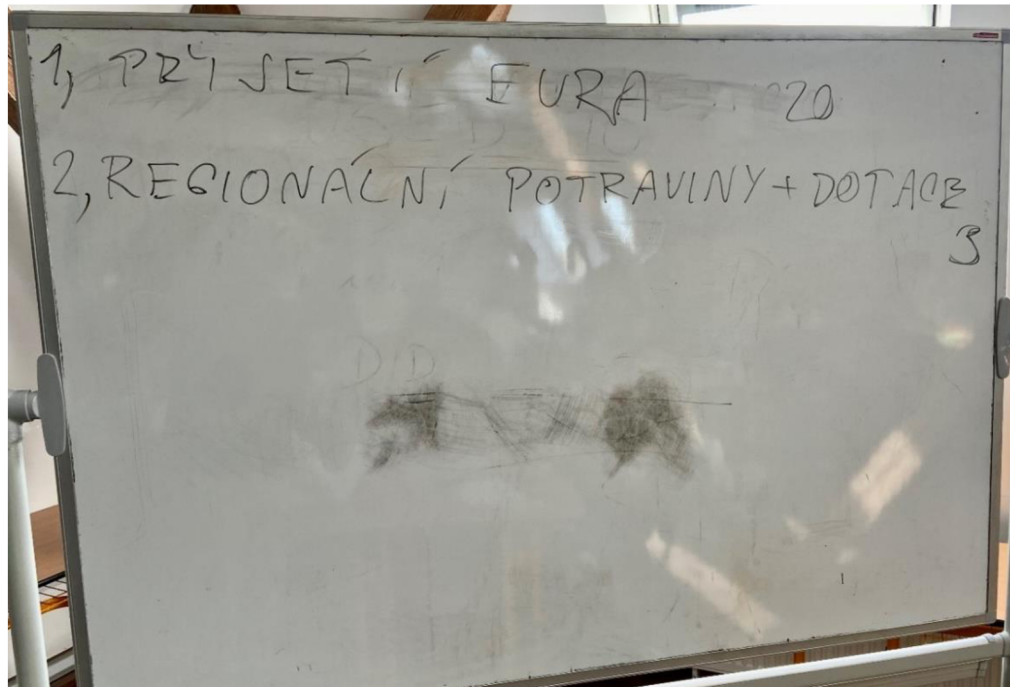 1, PŘIJETÍ EURA 20
2, REGIONÁLNÍ POTRAVINY + DOTACE
3